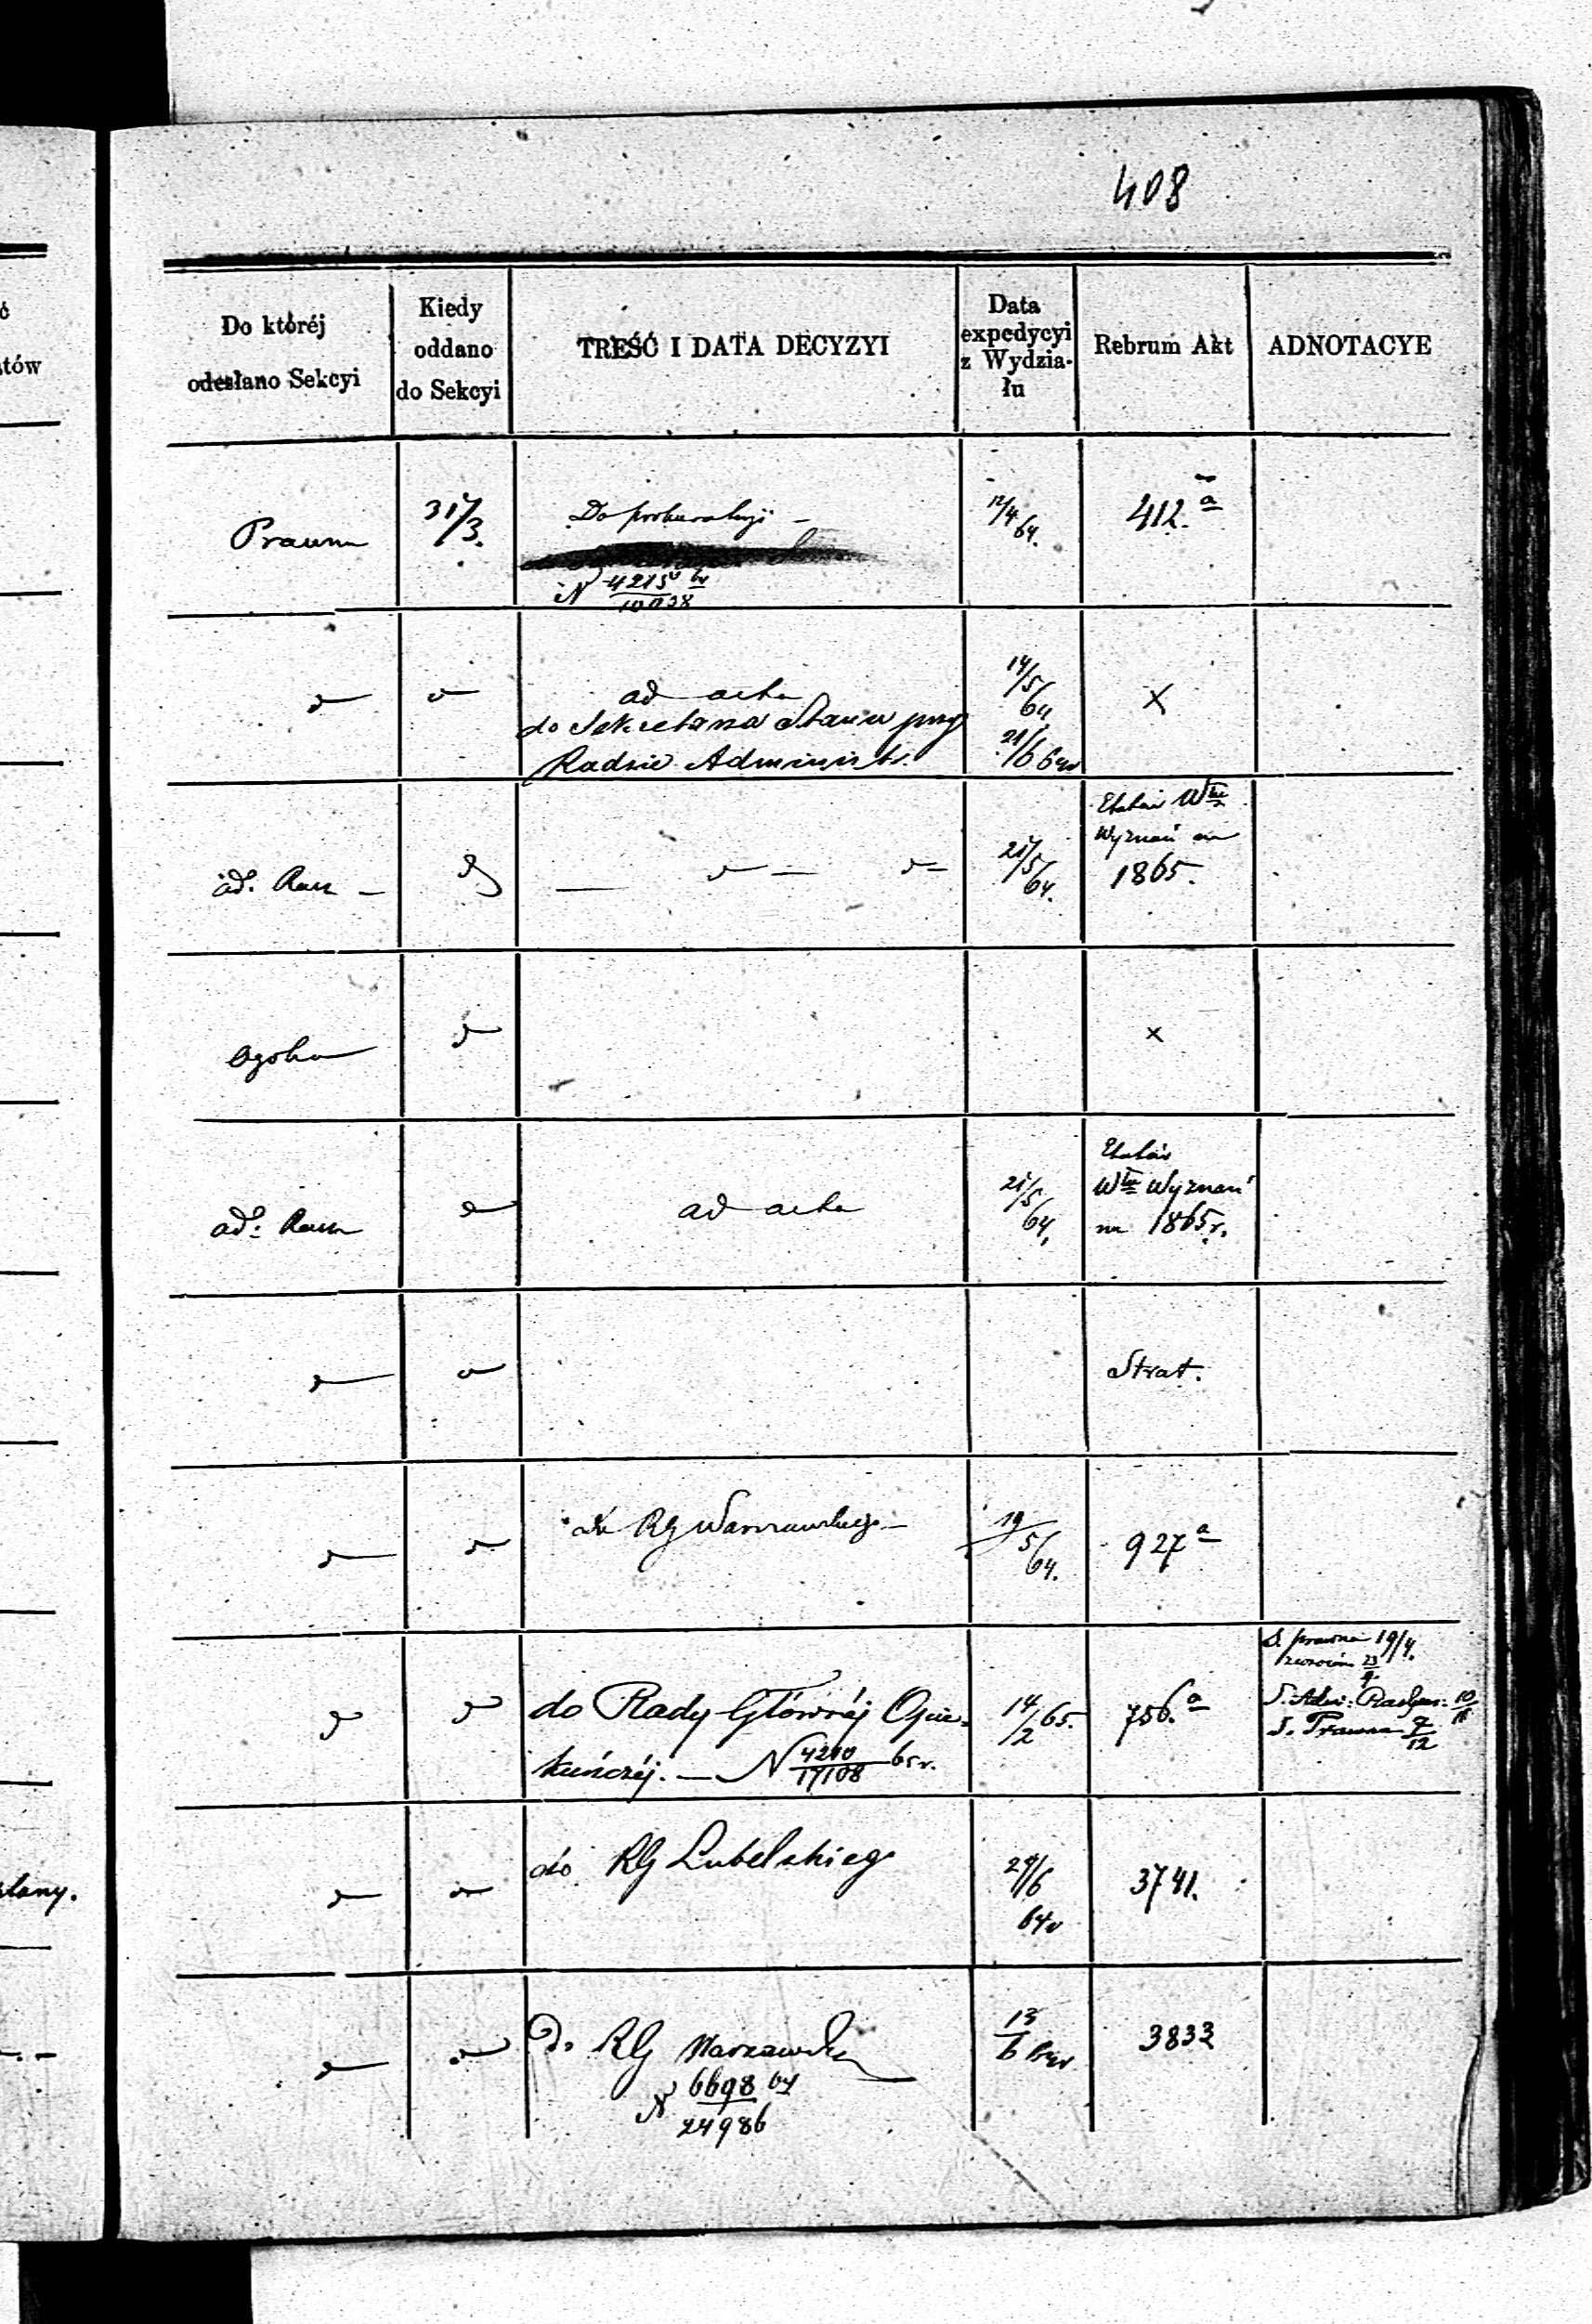 408
ć
stów
Do któréj
odesłano Sekcyi
Kiedy
oddano
do Sekcyi
TREŚĆ I DATA DECYZYI
Data
expedycyi
z Wydzia-
łu
Rebrum Akt
ADNOTACYE
Prawn
31/3.
Do prokuratoryi —
N 4215
10038
12/4 64.
412.a
ad acta
do Sekretarza Stanu przy
Radzie Administr.
14/5 64
21/6 64r
X
ad. Rach —
21/5 64.
Etatów Włu
Wyznań na
1865.
Ogólna
x
ad. Rach
ad acta
21/5 64.
Etatów
Włu Wyznań
na 1865 r.
Strat.
do RG Warszawskiego —
19/5 64.
927 a
do Rady Głównéj Opie-
kuńczéj. — N 4210 65 r.
17108
14/2 65.
756.a
S. prawna 19/4.
zwrócon 23
S. Adm: Rach: 10
S. Prawna 9/12
słany.
do RG Lubelskiego
29/6
64r
3741.
Do RG Warszawsk
N 6698 64
24986
13/6 64r
3833